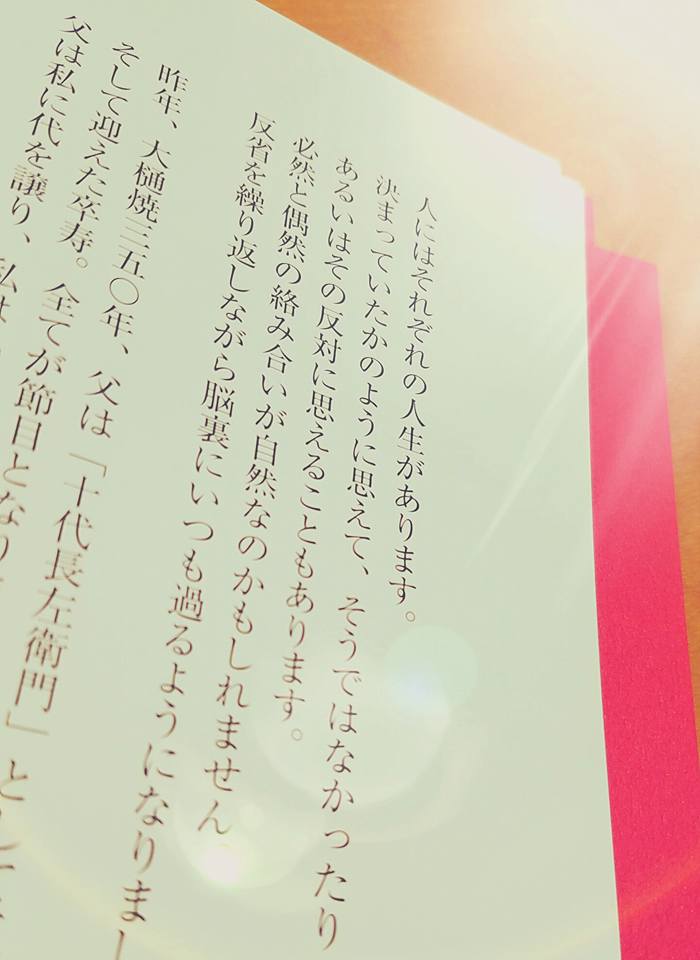 人にはそれぞれの人生があります。
決まっていたかのように思えて、そうではなかったり
あるいはその反対に思えることもあります。
必然と偶然の絡み合いが自然なのかもしれません
反省を繰り返しながら脳裏にいつも過るようになりまし
昨年、大樋焼三五〇年、父は「十代長左衛門」とし
そして迎えた卒寿。全てが節目となり
父は私に代を譲り、私は